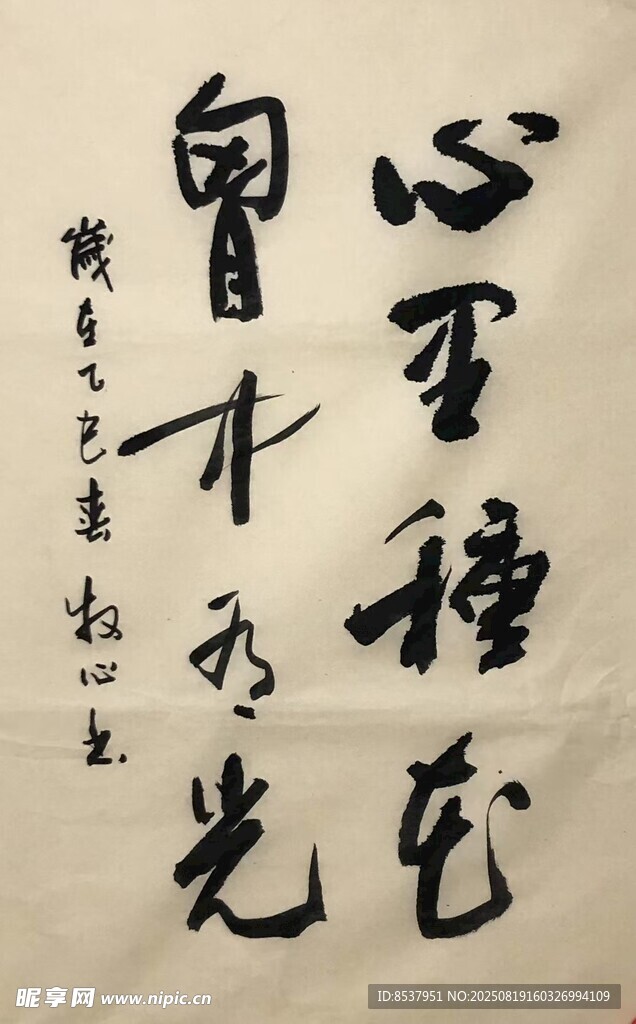 心里種花
胷中有光
歲在乙巳春 牧心书
昵享网 www.nipic.cn
ID:8537951 NO:20250819160326994109